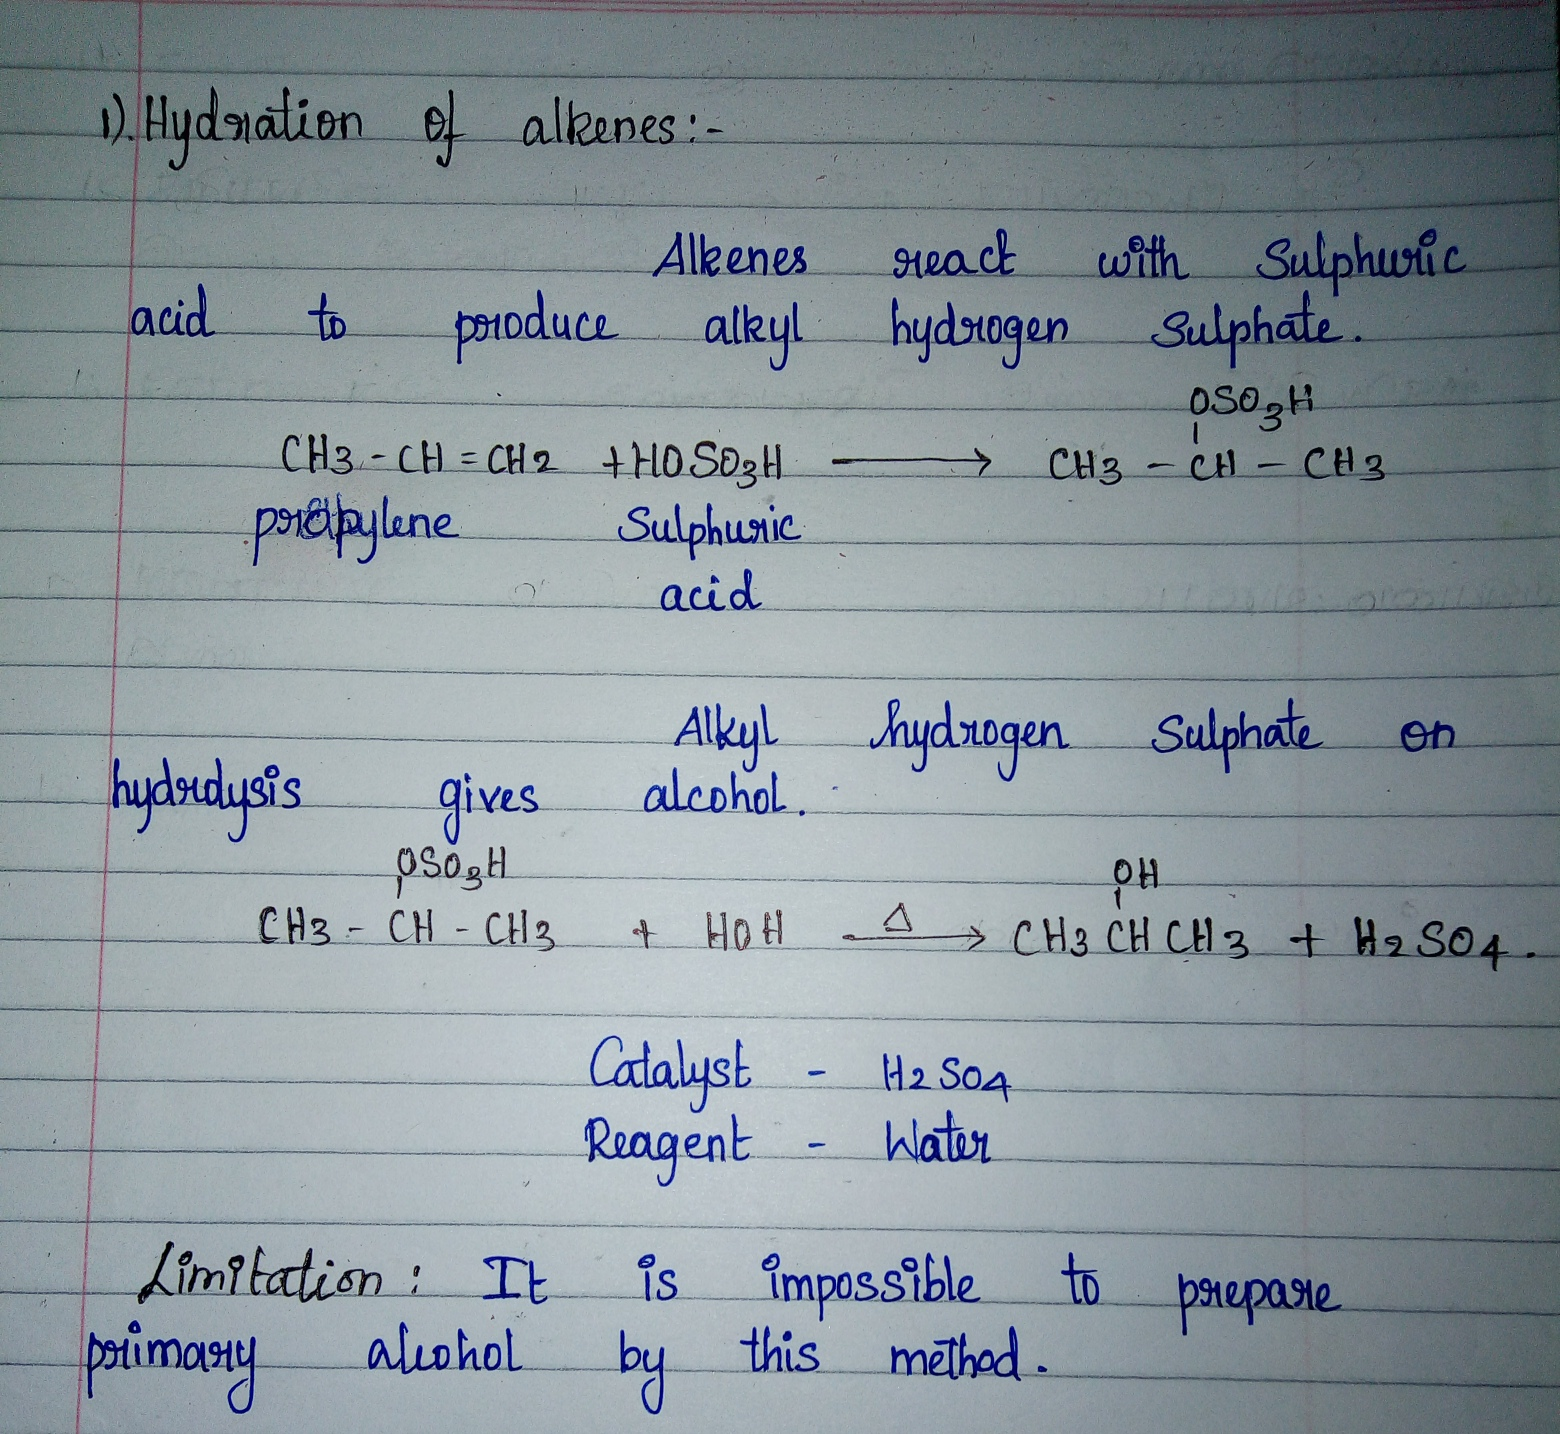 1). Hydration of alkenes:-
Alkenes react with Sulphuric
acid to produce alkyl hydrogen Sulphate.
OSO3H
CH3 - CH = CH2 + HOSO3H ⟶ CH3 - CH - CH3
propylene Sulphuric
acid
Alkyl hydrogen Sulphate on
hydrolysis gives alcohol.
OSO3H OH
CH3 - CH - CH3 + HOH Δ⟶ CH3 CH CH3 + H2SO4.
Catalyst - H2SO4
Reagent - Water
Limitation : It is impossible to prepare
primary alcohol by this method.